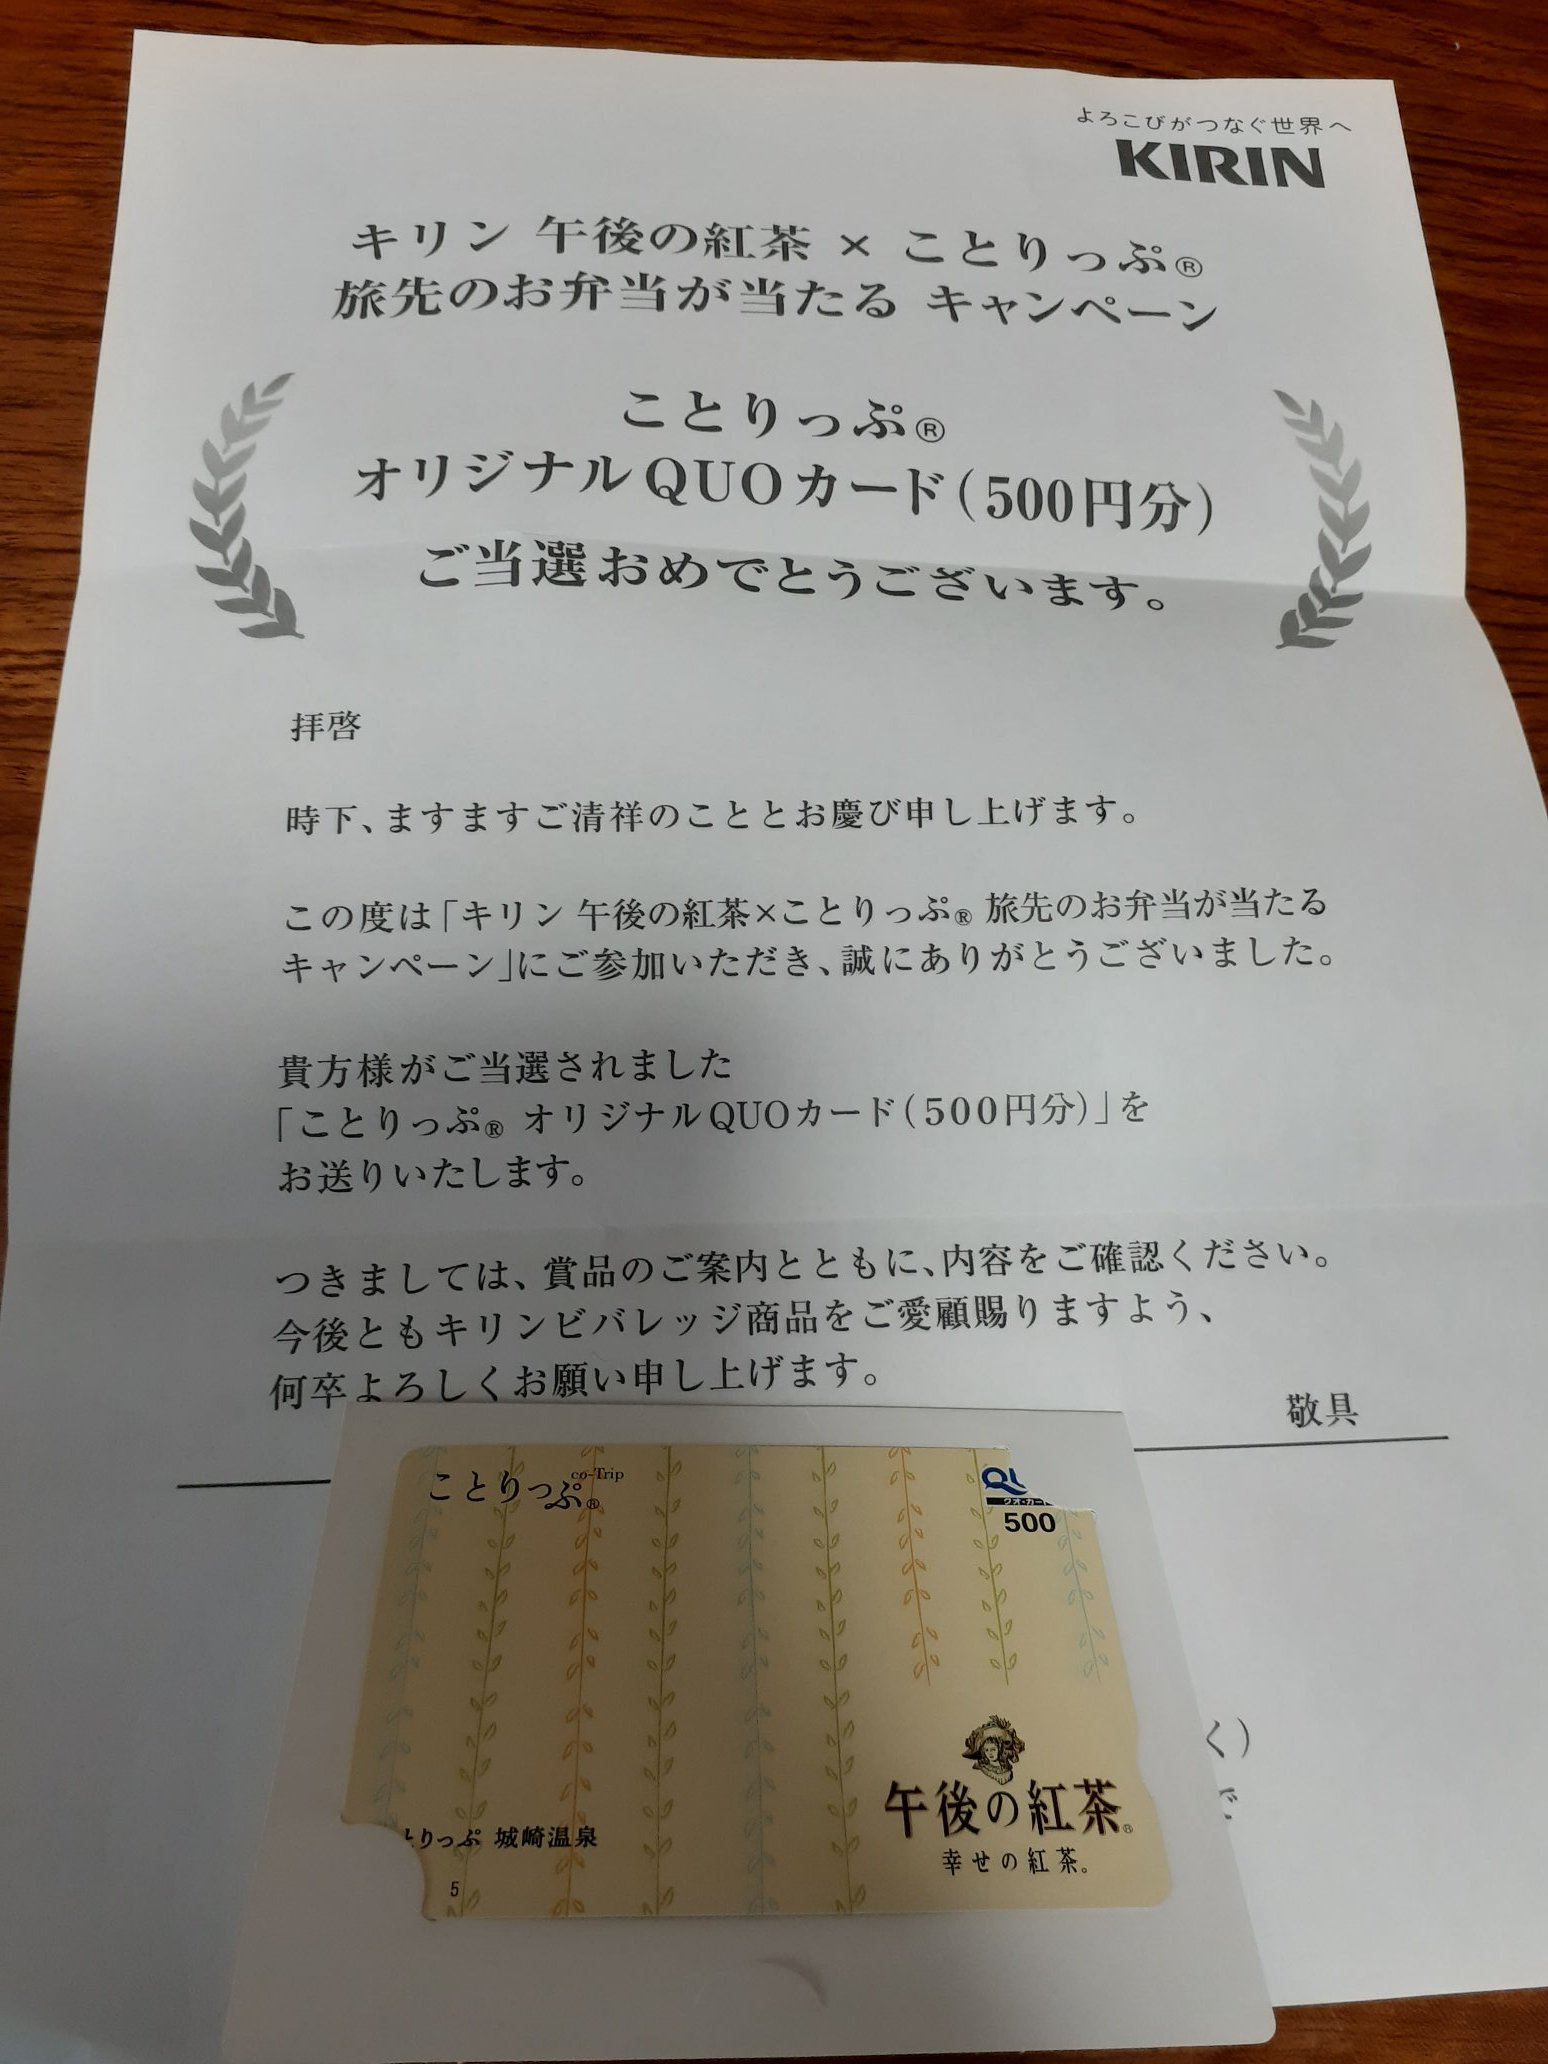 よろこびがつなぐ世界へ
KIRIN
キリン 午後の紅茶 × ことりっぷ®
旅先のお弁当が当たる キャンペーン
ことりっぷ®
オリジナルQUOカード(500円分)
ご当選おめでとうございます。
拝啓
時下、ますますご清祥のこととお慶び申し上げます。
この度は「キリン 午後の紅茶×ことりっぷ® 旅先のお弁当が当たる
キャンペーン」にご参加いただき、誠にありがとうございました。
貴方様がご当選されました
「ことりっぷ® オリジナルQUOカード(500円分)」を
お送りいたします。
つきましては、賞品のご案内とともに、内容をご確認ください。
今後ともキリンビバレッジ商品をご愛顧賜りますよう、
何卒よろしくお願い申し上げます。
敬具
co-Trip
ことりっぷ®
QU
クオ・カード
500
とりっぷ 城崎温泉
5
午後の紅茶®
幸せの紅茶。
く)
で、